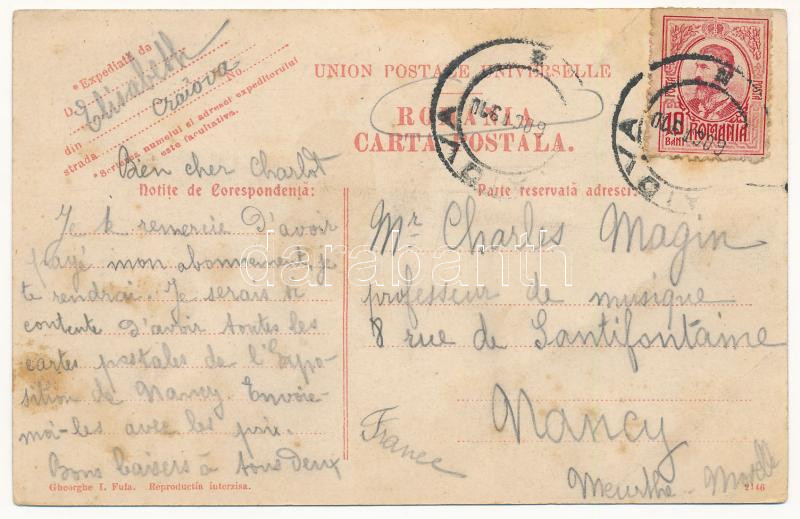 *Expediată de
D Elisabeth No.
din Craiova
strada
*Scrierea numelui și adresei expeditorului
este facultativă.
UNION POSTALE UNIVERSELLE
ROMANIA
CARTA POSTALA.
10 ROMANIA
BANI
Bien cher Charlot
Notițe de Corespondență:
Je te remercie d'avoir
payé mon abonnement, je
te rendrai. Je serais bi
contente d'avoir toutes les
cartes postales de l'Expo-
sition de Nancy. Envoie-
moi-les avec les prix.
Bons baisers à tous deux
Gheorghe I. Fufa. Reproductia interzisa.
Parte reservată adresei:
Mr Charles Magin
professeur de musique
8 rue de Santifontaine
Nancy
France
Meurthe-Moselle
2146
darabanth